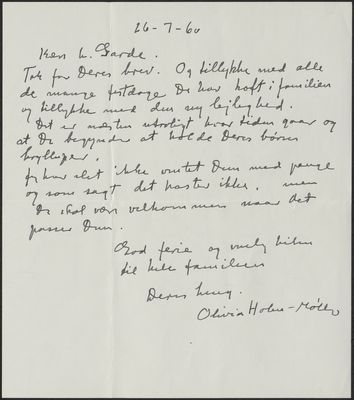 26-7-60
Kære h. Garde.
Tak for Deres brev. Og tillykke med alle
de mange festdage De har haft i familien
og tillykke med den ny lejlighed.
Det er næsten utroligt hvor tiden gaar og
at De begynder at holde Deres børns
bryllupper.
Jeg har slet ikke ventet Dem med penge
og som sagt det haster ikke. men
De skal være velkommen naar det
passer Dem.
God ferie og venlig hilsen
til hele familien
Deres heng.
Olivia Holm-Møller